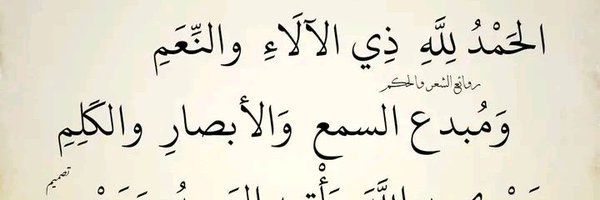 الحَمْدُ لِلَّهِ ذِي الآلَاءِ والنِّعَمِ
روائع الشعر والحكم
وَمُبدع السمع وَالأبصارِ والكَلِمِ
تصميم